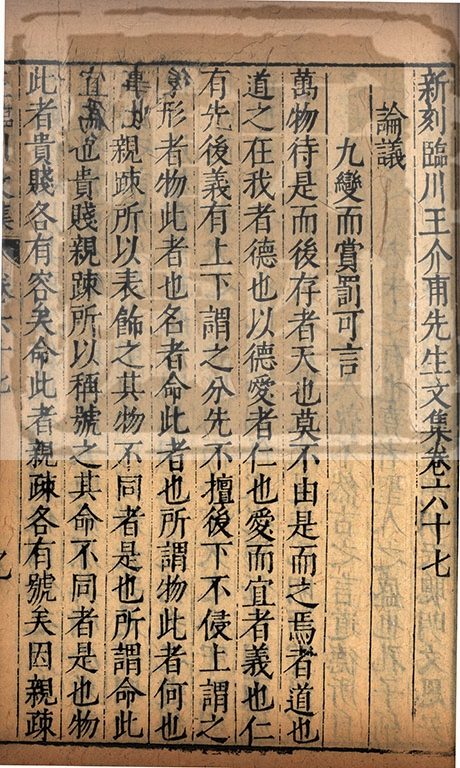 新刻臨川王介甫先生文集卷六十七
論議
九變而賞罰可言
萬物待是而後存者天也莫不由是而之焉者道也
道之在我者德也以德愛者仁也愛而宜者義也仁
有先後義有上下謂之分先不擅後下不侵上謂之
形者物此者也名者命此者也所謂物此者何也
親疎所以表飾之其物不同者是也所謂命此
也貴賤親疎所以稱號之其命不同者是也物
此者貴賤各有容矣命此者親疎各有號矣因親疎